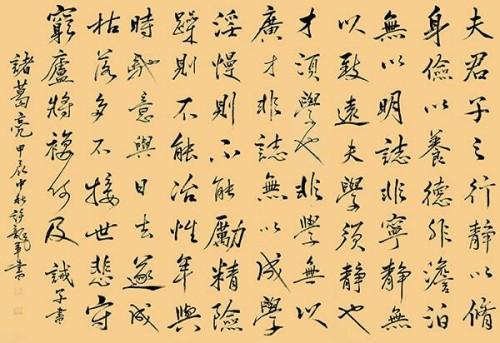 夫君子之行靜以脩
身儉以養德非澹泊
無以明誌非寧靜無
以致遠夫學須靜也
才須學也非學無以
廣才非誌無以成學
淫慢則不能勵精險
躁則不能冶性年與
時馳意與日去遂成
枯落多不接世悲守
窮廬將複何及 誡子書
諸葛亮 甲辰中秋 書